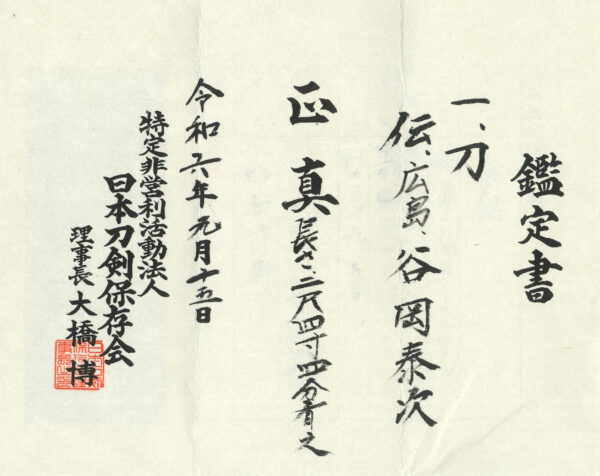 鑑定書
一、刀
伝、広島、谷岡泰次
正真 長サ、二尺四寸四分有之
令和六年元月十五日
特定非営利活動法人
日本刀剣保存会
理事長 大橋 博